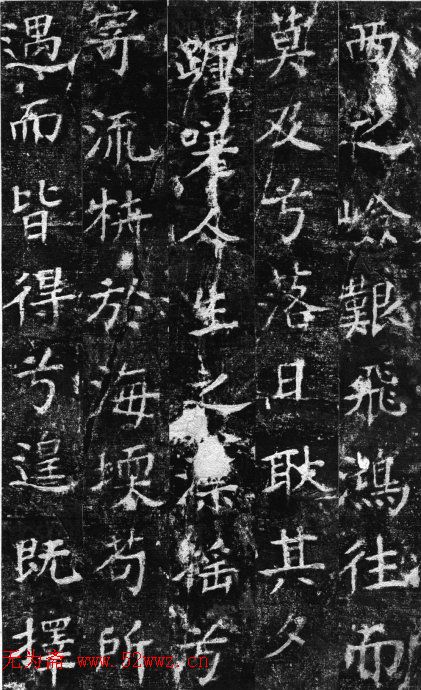 西之崄艱飛鴻往而
莫及兮落日耿其夕
躔嗟今生之徭兮
寄流枿於海堧苟所
遇而皆得兮遑既擇
无为斋 www.52wwz.cn